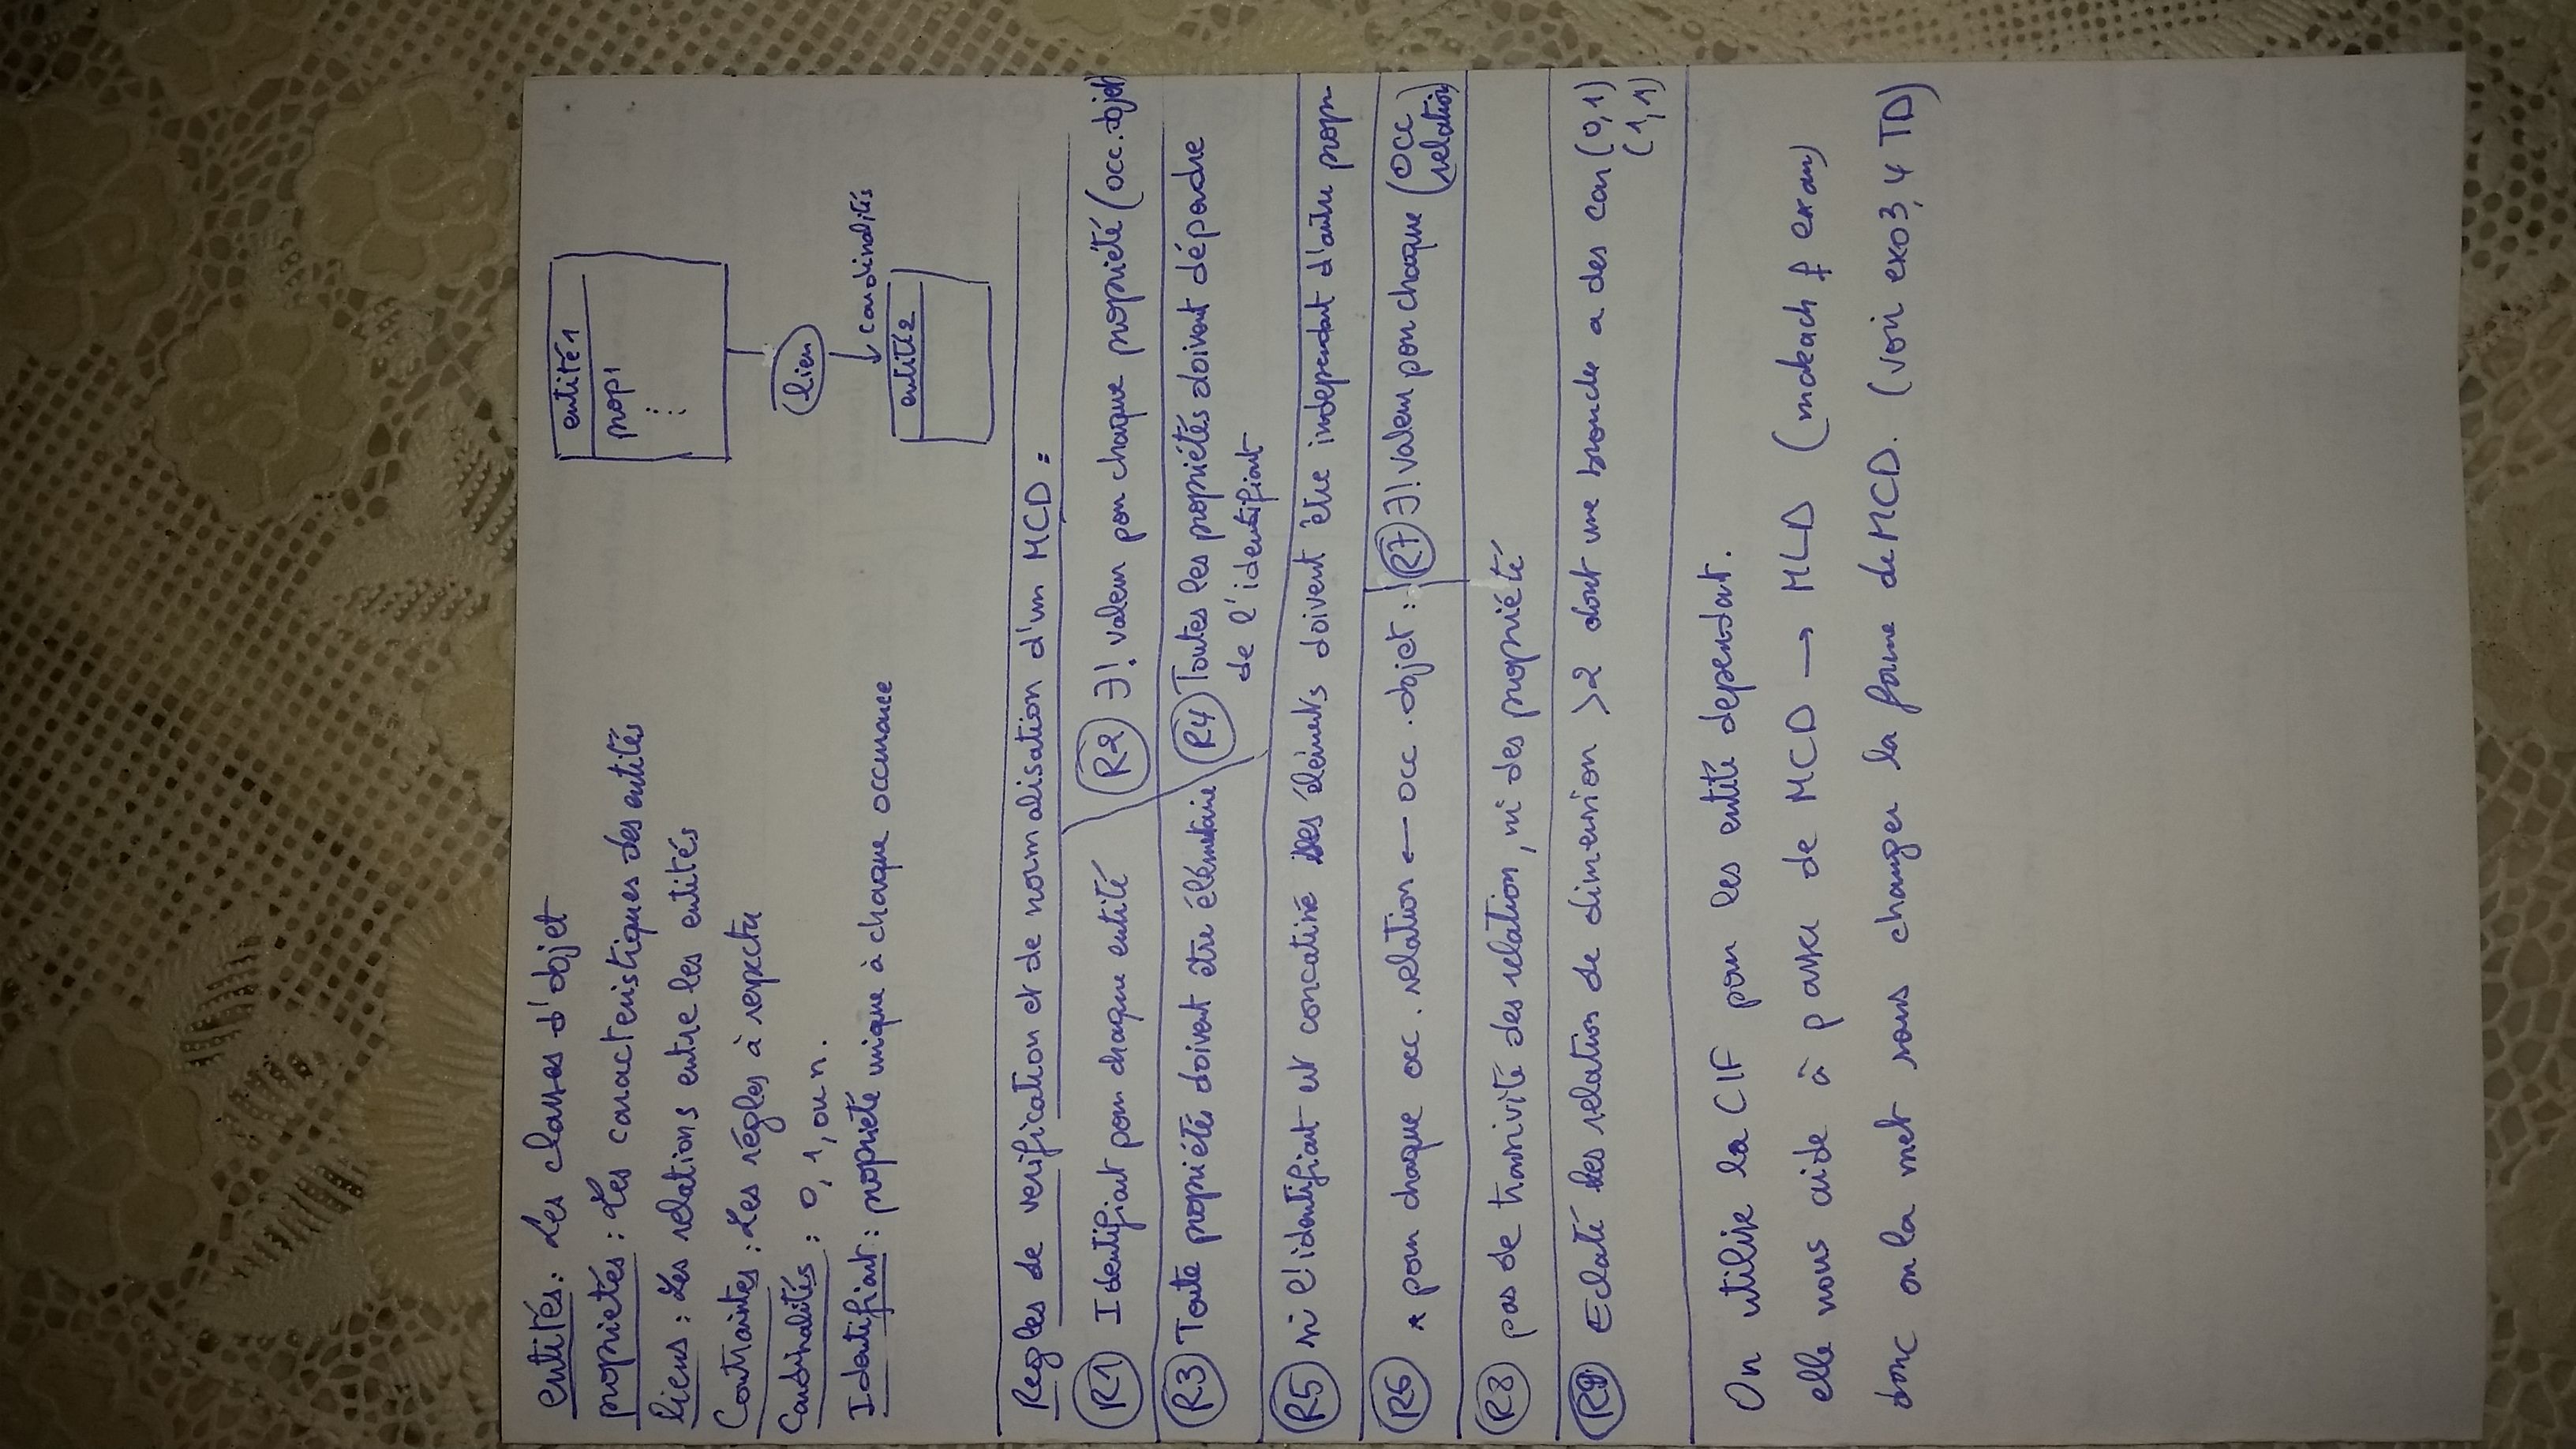 entités : Les classes d'objet
propriétés : Les caracteristiques des entités
liens : Les relations entre les entités
Contraintes : Les régles à respecter
Cardinalités : 0, 1, ou n.
Identifiant : propriété unique à chaque occurance
entité1
prop1
lien
cardinalités
entité2
Regles de verification et de normalisation d'un MCD :
R1 Identifiant pour chaque entité
R2 ∃! valeur pour chaque propriété (occ. objet)
R3 Toute propriétés doivent être élémentaire
R4 Toutes les propriétés doivent dépendre
de l'identifiant
R5 si l'identifiant est concatiné les éléments doivent être independant d'autre propr
R6 * pour chaque occ. relation ← occ. objet :
R7 ∃! valeur pour chaque (occ
relation)
R8 pas de transivité des relation, ni des propriété
R9 Eclaté les relation de dimension >2 dont une branche a des car (0,1)
(1,1)
On utilise la CIF pour les entité dependant.
elle nous aide à passer de MCD → MLD (makach f exam)
donc on la met sans changer la forme de MCD. (voir exo3,4 TD)